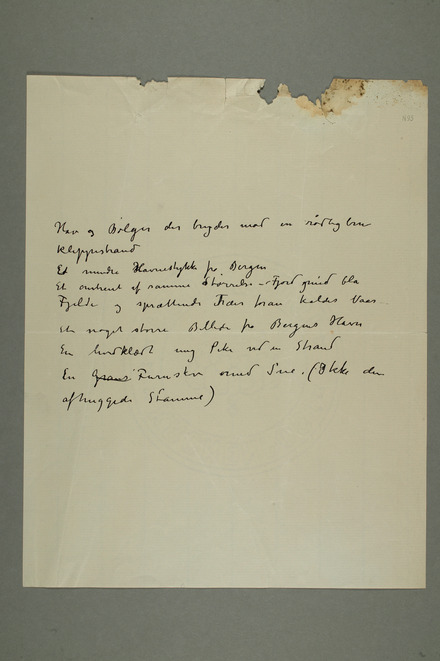 Hav og Bølger der brydes mod en rødlig brun
Klippestrand
Et mindre Havnestykke fra Bergen
Et omtrent af samme Størrelse – Fjord med blå
Fjelde og sprættende Træer foran kaldes Vaar
Et noget større Billede fra Bergens Havn
En hvidklædt ung Pike ved en Strand
En Furuskov med Sne. (Ikke den
afhuggede Stamme)